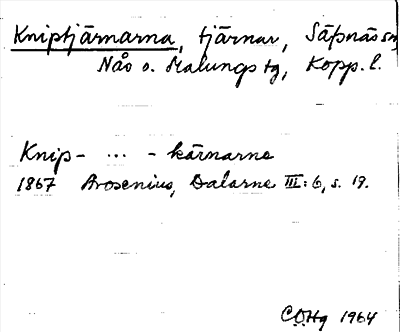 Kniptjärnarna, tjärnar, Säfsnäs sn,
Nås o. Malungs tg, Kopp. l.
Knip- ... - kärnarne
1867 Arosenius, Dalarne III: 6, s. 19.
CÖHg 1964